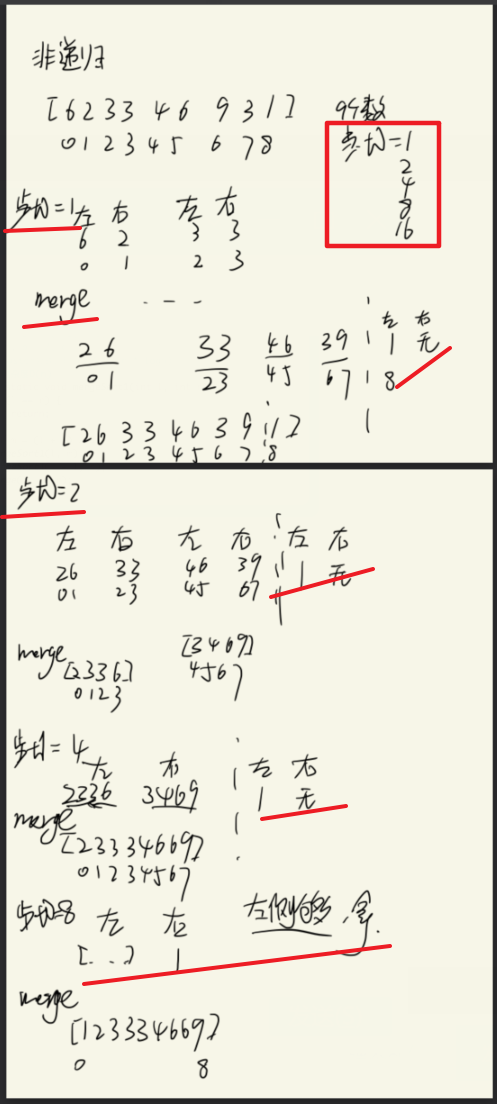 非递归
[6 2 3 3 4 6 9 3 1] 9个数
0 1 2 3 4 5 6 7 8 步长=1
2
4
8
16
步长=1 左 右 左 右
6 2 3 3
0 1 2 3
merge - - -
左 右
2 6 3 3 4 6 3 9 1 无
0 1 2 3 4 5 6 7 8
[2 6 3 3 4 6 3 9 1]
0 1 2 3 4 5 6 7 8
步长=2
左 右 左 右 左 右
26 33 46 39 1 无
01 23 45 67
merge [2336] [3469]
0123 4567
步长=4
左 右 左 右
2336 3469 1 无
merge
[23334669]
01234567
步长=8 左 右
[. . .] 1
merge
[123334669]
0 8